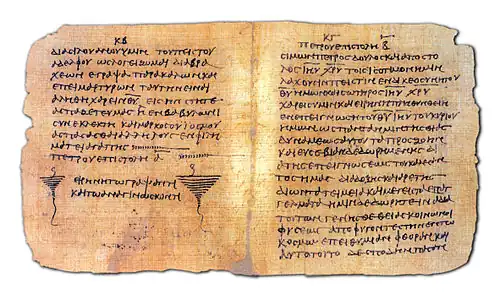 ΚΒ
ΔΙΑ ΣΙΛΟΥΑΝΟΥ ΥΜΙΝ ΤΟΥ ΠΙΣΤΟΥ
ΑΔΕΛΦΟΥ ΩΣ ΛΟΓΙΖΟΜΑΙ ΔΙΑ ΒΡΑ
ΧΕΩΝ ΕΓΡΑΨΑ ΠΑΡΑΚΑΛΩΝ ΚΑΙ
ΕΠΙΜΑΡΤΥΡΩΝ ΤΑΥΤΗΝ ΕΙΝΑΙ
ΑΛΗΘΗ ΧΑΡΕΙΝ ΕΙΣ ΗΝ ΣΤΗΤΕ
ΑΣΠΑΖΕΤΕ ΥΜΑΣ Η ΕΝ ΒΑΒΥΛΩΝΙ
ΣΥΝΕΚΛΕΚΤΗ ΚΑΙ ΜΑΡΚΟΣ Ο ΥΙΟΣ ΜΟΥ
ΑΣΠΑΣΑΣΘΑΙ ΑΛΛΗΛΟΥΣ ΕΝ ΦΙΛΗ
ΜΑΤΕΙ ΑΓΑΠΗΣ
ΠΕΤΡΟΥ ΕΠΙΣΤΟΛΗ Α
ΕΙΡΗΝΗ ΤΩ ΓΡΑΨΑΝΤΙ
ΚΑΙ ΤΩ ΑΝΑΓΙΝΩΣΚΟΝΤΙ
ΚΓ
ΠΕΤΡΟΥ ΕΠΙΣΤΟΛΗ Β
ΣΙΜΩΝ ΠΕΤΡΟΣ ΔΟΥΛΟΣ ΚΑΙ ΑΠΟΣΤΟ
ΛΟΣ ΙΗΥ ΧΡΥ ΤΟΙΣ ΙΣΟΤΙΜΟΝ ΗΜΙΝ
ΛΑΧΟΥΣΙ ΠΙΣΤΙΝ ΕΝ ΔΙΚΕΟΣΥΝΗ ΤΟΥ
ΘΥ ΗΜΩΝ ΚΑΙ ΣΩΤΗΡΟΣ ΙΗΥ ΧΡΥ
ΧΑΡΙΣ ΥΜΙΝ ΚΑΙ ΕΙΡΗΝΗ ΠΛΗΘΥΝΘΕΙΗ
ΕΝ ΕΠΙΓΝΩΣΙ ΤΟΥ ΘΥ ΙΗΥ ΤΟΥ ΚΥΡΙΟΥ
ΗΜΩΝ ΩΣ ΠΑΝΤΑ ΗΜΙΝ ΤΗΣ ΘΕΙΑΣ
ΔΥΝΑΜΕΩΣ ΑΥΤΟΥ ΤΑ ΠΡΟΣ ΖΩΗΝ
ΚΑΙ ΔΙΑ
ΤΗΣ ΕΠΙΓΝΩΣΕΩΣ ΤΟΥ ΚΑΛΕΣΑΝ
ΤΟΣ ΗΜΑΣ ΔΙΑ ΔΟΞΗΣ ΚΑΙ ΑΡΕΤΗΣ
ΔΙ ΩΝ ΤΑ ΤΕΙΜΕΙΑ ΚΑΙ ΜΕΓΙΣΤΑ ΕΠΑΓ
ΓΕΛΜΑΤΑ ΗΜΙΝ ΔΕΔΩΡΗΤΕ ΙΝΑ ΔΙΑ
ΤΟΥΤΩΝ ΓΕΝΗΣΘΕ ΘΕΙΑΣ ΚΟΙΝΩΝΟΙ
ΦΥΣΕΩΣ ΑΠΟΦΥΓΟΝΤΕΣ ΤΗΝ ΕΝ ΤΩ
ΚΟΣΜΩ ΕΠΕΙΘΥΜΙΑΝ ΦΘΟΡΑΣ ΚΑΙ
ΑΥΤΟ ΤΟΥΤΟ ΔΕ ΣΠΟΥΔΗΝ ΠΑΣΑΝ